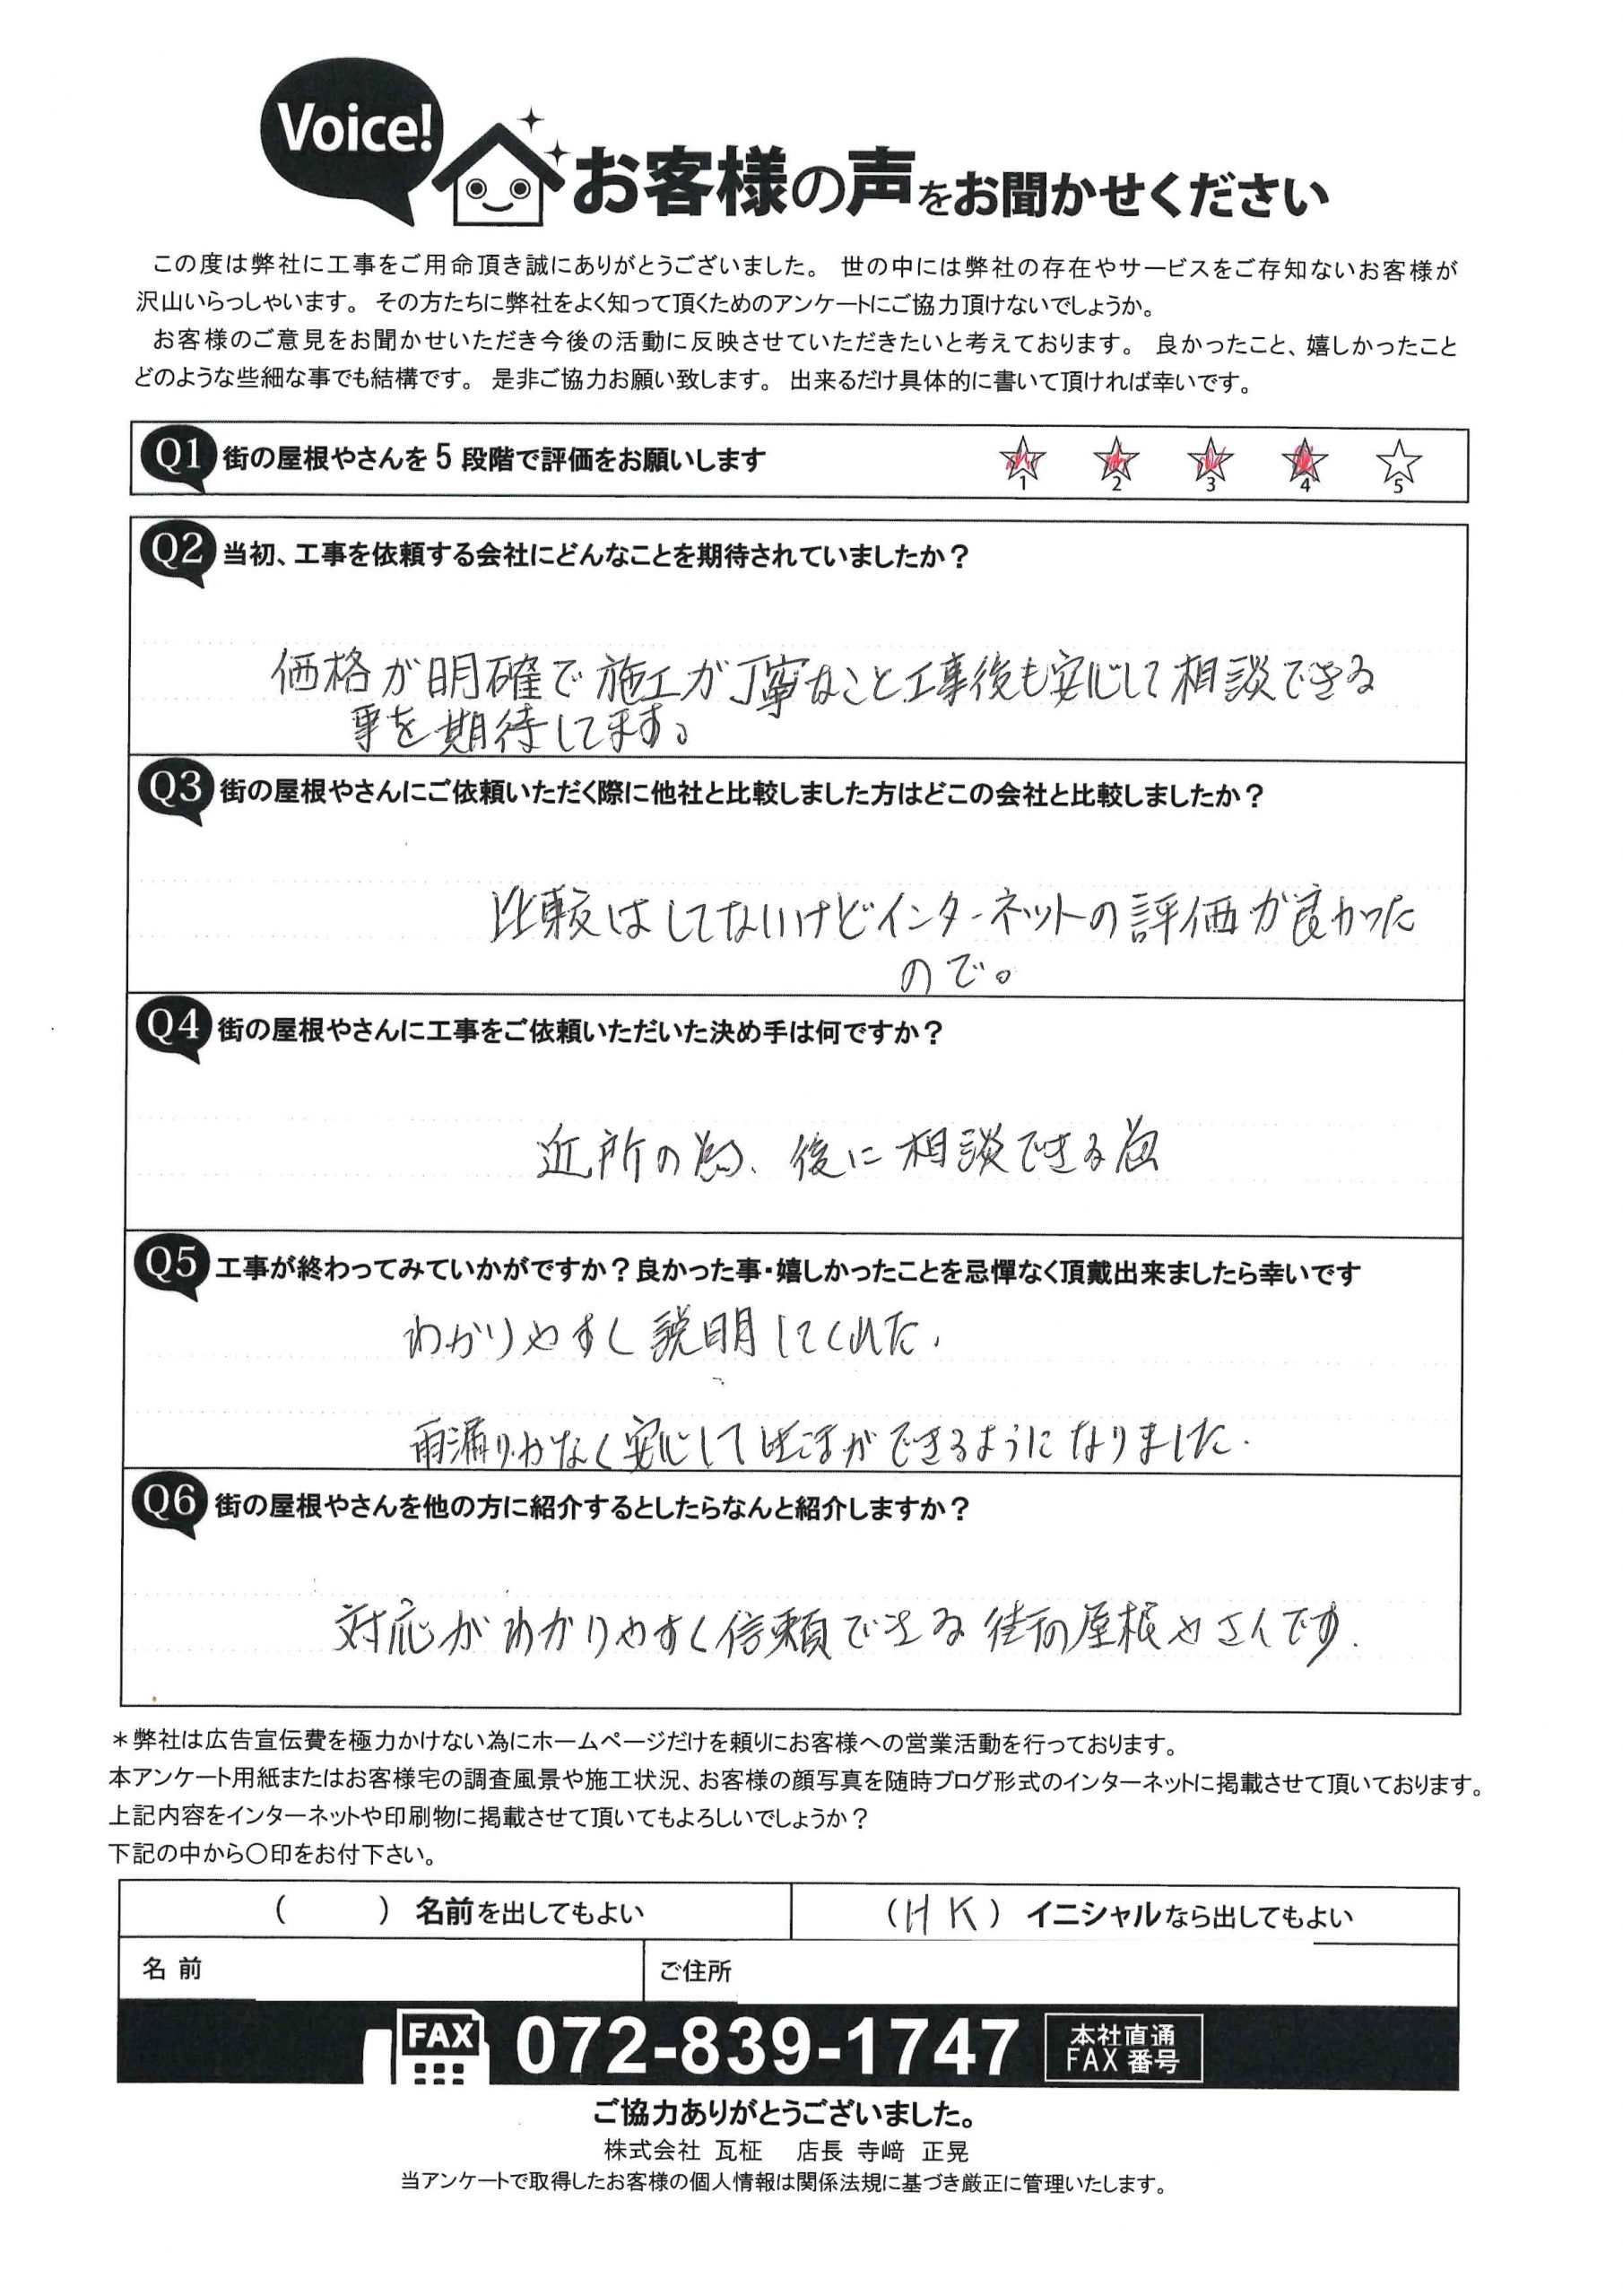 Voice!
お客様の声をお聞かせください
この度は弊社に工事をご用命頂き誠にありがとうございました。 世の中には弊社の存在やサービスをご存知ないお客様が
沢山いらっしゃいます。 その方たちに弊社をよく知って頂くためのアンケートにご協力頂けないでしょうか。
お客様のご意見をお聞かせいただき今後の活動に反映させていただきたいと考えております。 良かったこと、嬉しかったこと
どのような些細な事でも結構です。 是非ご協力お願い致します。 出来るだけ具体的に書いて頂ければ幸いです。
Q1 街の屋根やさんを5段階で評価をお願いします 1 2 3 4 5
Q2 当初、工事を依頼する会社にどんなことを期待されていましたか？
価格が明確で施工が丁寧なこと工事後も安心して相談できる
事を期待してます。
Q3 街の屋根やさんにご依頼いただく際に他社と比較しました方はどこの会社と比較しましたか？
比較はしてないけどインターネットの評価が良かった
ので。
Q4 街の屋根やさんに工事をご依頼いただいた決め手は何ですか？
近所の為、後に相談できる為
Q5 工事が終わってみていかがですか？良かった事・嬉しかったことを忌憚なく頂戴出来ましたら幸いです
わかりやすく説明してくれた.
雨漏りがなく安心して ができるようになりました.
Q6 街の屋根やさんを他の方に紹介するとしたらなんと紹介しますか？
対応がわかりやすく信頼できる街の屋根やさんです.
＊弊社は広告宣伝費を極力かけない為にホームページだけを頼りにお客様への営業活動を行っております。
本アンケート用紙またはお客様宅の調査風景や施工状況、お客様の顔写真を随時ブログ形式のインターネットに掲載させて頂いております。
上記内容をインターネットや印刷物に掲載させて頂いてもよろしいでしょうか？
下記の中から〇印をお付下さい。
（　　）名前を出してもよい （HK）イニシャルなら出してもよい
名 前 ご住所
FAX 072-839-1747 本社直通
FAX 番号
ご協力ありがとうございました。
株式会社 瓦柾 店長 寺﨑 正晃
当アンケートで取得したお客様の個人情報は関係法規に基づき厳正に管理いたします。